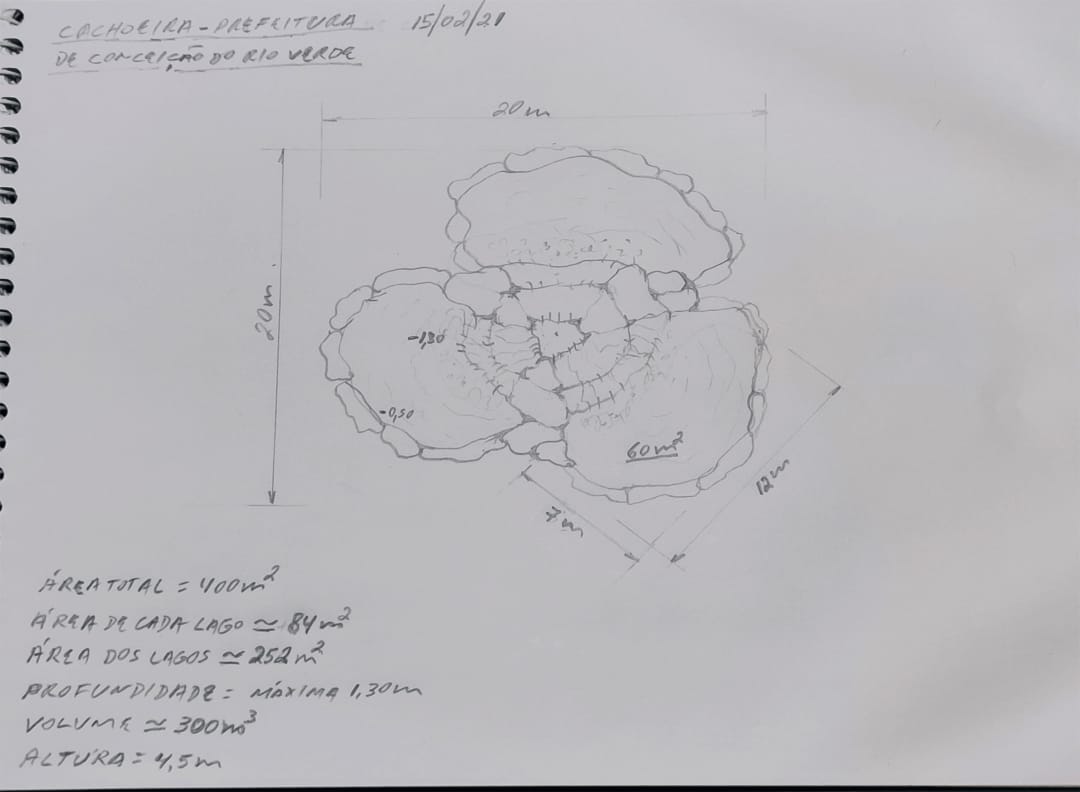 CACHOEIRA - PREFEITURA 15/02/21
DE CONCEIÇÃO DO RIO VERDE
20m
20m
-1,30
-0,50
60m²
12m
7m
ÁREA TOTAL = 400m²
ÁREA DE CADA LAGO ≃ 84m²
ÁREA DOS LAGOS ≃ 252m²
PROFUNDIDADE = MÁXIMA 1,30m
VOLUME ≃ 300m³
ALTURA = 4,5m